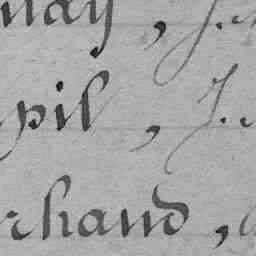 nay, J.
pil, J.
rhand,